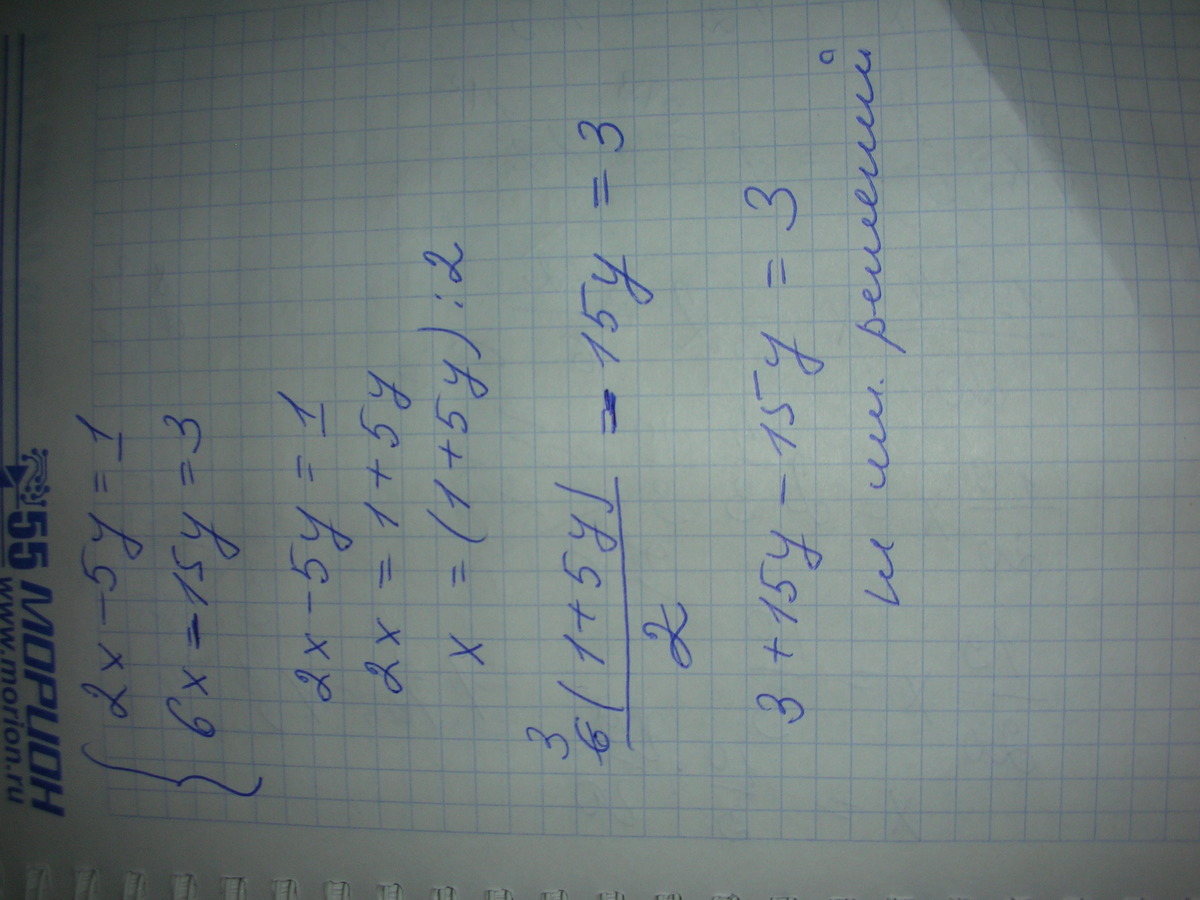 55 МОРИОН
www.morion.ru
{ 2x - 5y = 1
6x - 15y = 3
2x - 5y = 1
2x = 1 + 5y
x = (1 + 5y) : 2
3
6(1 + 5y)
- 15y = 3
2
3 + 15y - 15y = 3
решений